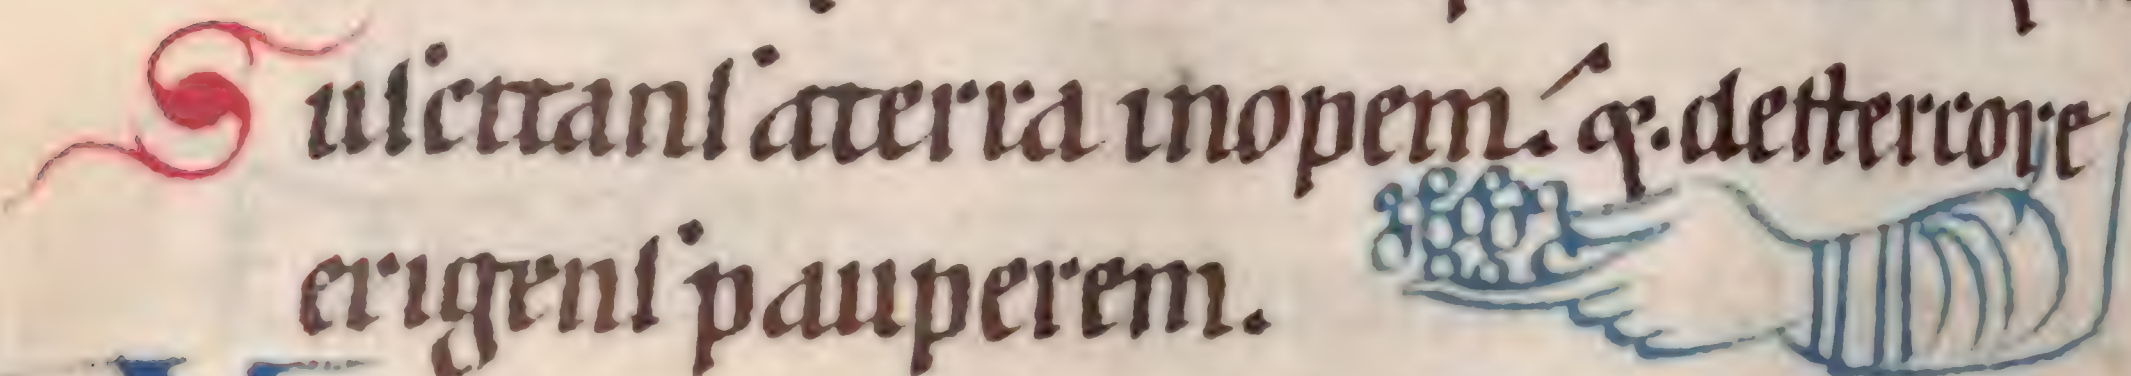 Suſcitanſ aterra inopem. &. deſtercore
erigenſ pauperem.